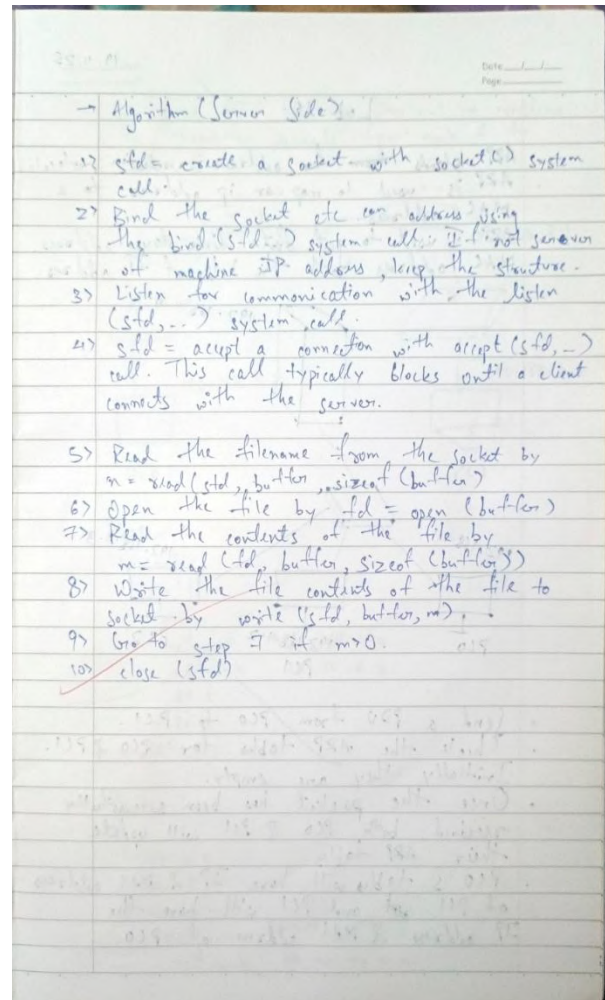 Date __/__/__
Page ______
→ Algorithm (Server Side)
1> sfd = create a socket with socket() system
call.
2> Bind the socket etc can address using
the bind (sfd...) systems call. If not
of machine IP address, keep the structure.
3> Listen for commonication with the listen
(sfd,...) system call.
4> sfd = accept a connection with accept (sfd,...)
call. This call typically blocks until a client
connects with the server.
5> Read the filename from the socket by
n = read (sfd, buffer, sizeof (buffer)
6> Open the file by fd = open (buffer)
7> Read the contents of the file by
m = read (fd, buffer, sizeof (buffer))
8> Write the file contents of the file to
socket by write (sfd, buffer, m).
9> Go to step 7 if m>0.
10> close (sfd)